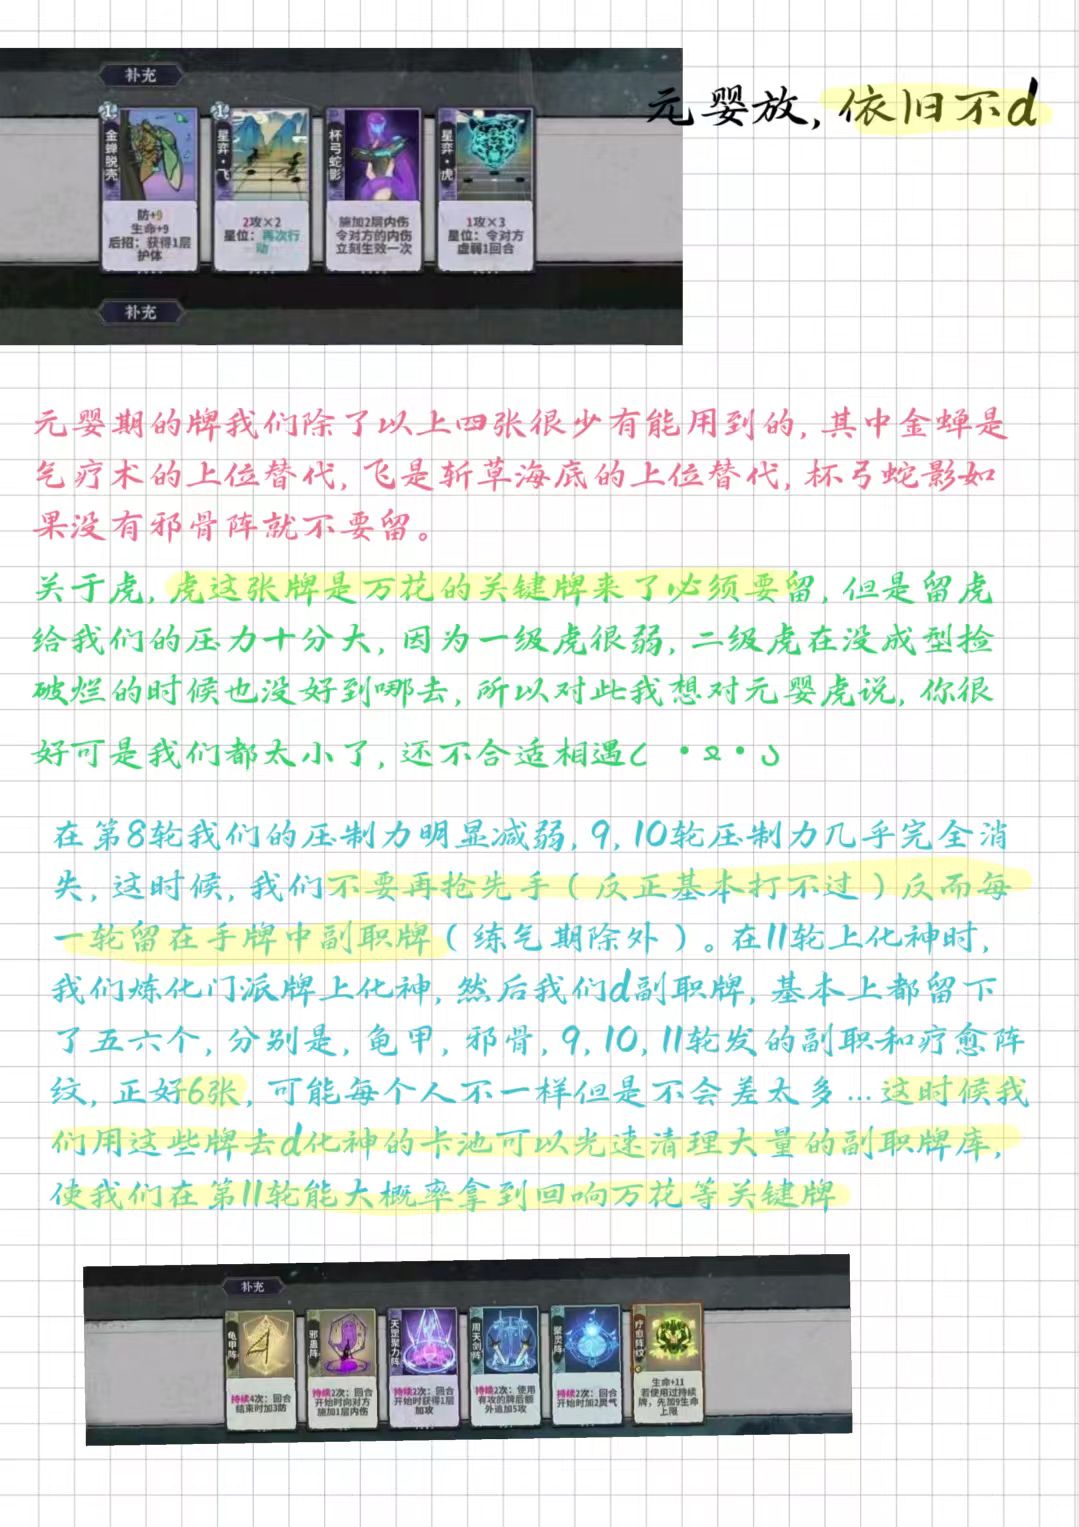 补充
元婴放,依旧不d
金蝉脱壳
防+9
生命+9
后招:获得1层
护体
星弈·飞
2攻×2
星位:再次行
动
杯弓蛇影
施加2层内伤
令对方的内伤
立刻生效一次
星弈·虎
1攻×3
星位:令对方
虚弱1回合
补充
元婴期的牌我们除了以上四张很少有能用到的,其中金蝉是
气疗术的上位替代,飞是斩草海底的上位替代,杯弓蛇影如
果没有邪骨阵就不要留。
关于虎,虎这张牌是万花的关键牌来了必须要留,但是留虎
给我们的压力十分大,因为一级虎很弱,二级虎在没成型捡
破烂的时候也没好到哪去,所以对此我想对元婴虎说,你很
好可是我们都太小了,还不合适相遇
在第8轮我们的压制力明显减弱,9,10轮压制力几乎完全消
失,这时候,我们不要再抢先手(反正基本打不过)反而每
一轮留在手牌中副职牌(练气期除外)。在11轮上化神时,
我们炼化门派牌上化神,然后我们d副职牌,基本上都留下
了五六个,分别是,龟甲,邪骨,9,10,11轮发的副职和疗愈阵
纹,正好6张,可能每个人不一样但是不会差太多...这时候我
们用这些牌去d化神的卡池可以光速清理大量的副职牌库,
使我们在第11轮能大概率拿到回响万花等关键牌
补充
龟甲阵
持续4次:回合
结束时加3防
邪蛊阵
持续2次:回合
开始时向对方
施加1层内伤
天罡聚力阵
持续2次:回合
开始时获得1层
加攻
周天剑阵
持续2次:使用
有攻的牌后额
外追加5攻
聚灵阵
持续2次:回合
开始时加2灵气
疗愈阵纹
生命+11
若使用过持续
牌,先加9生命
上限